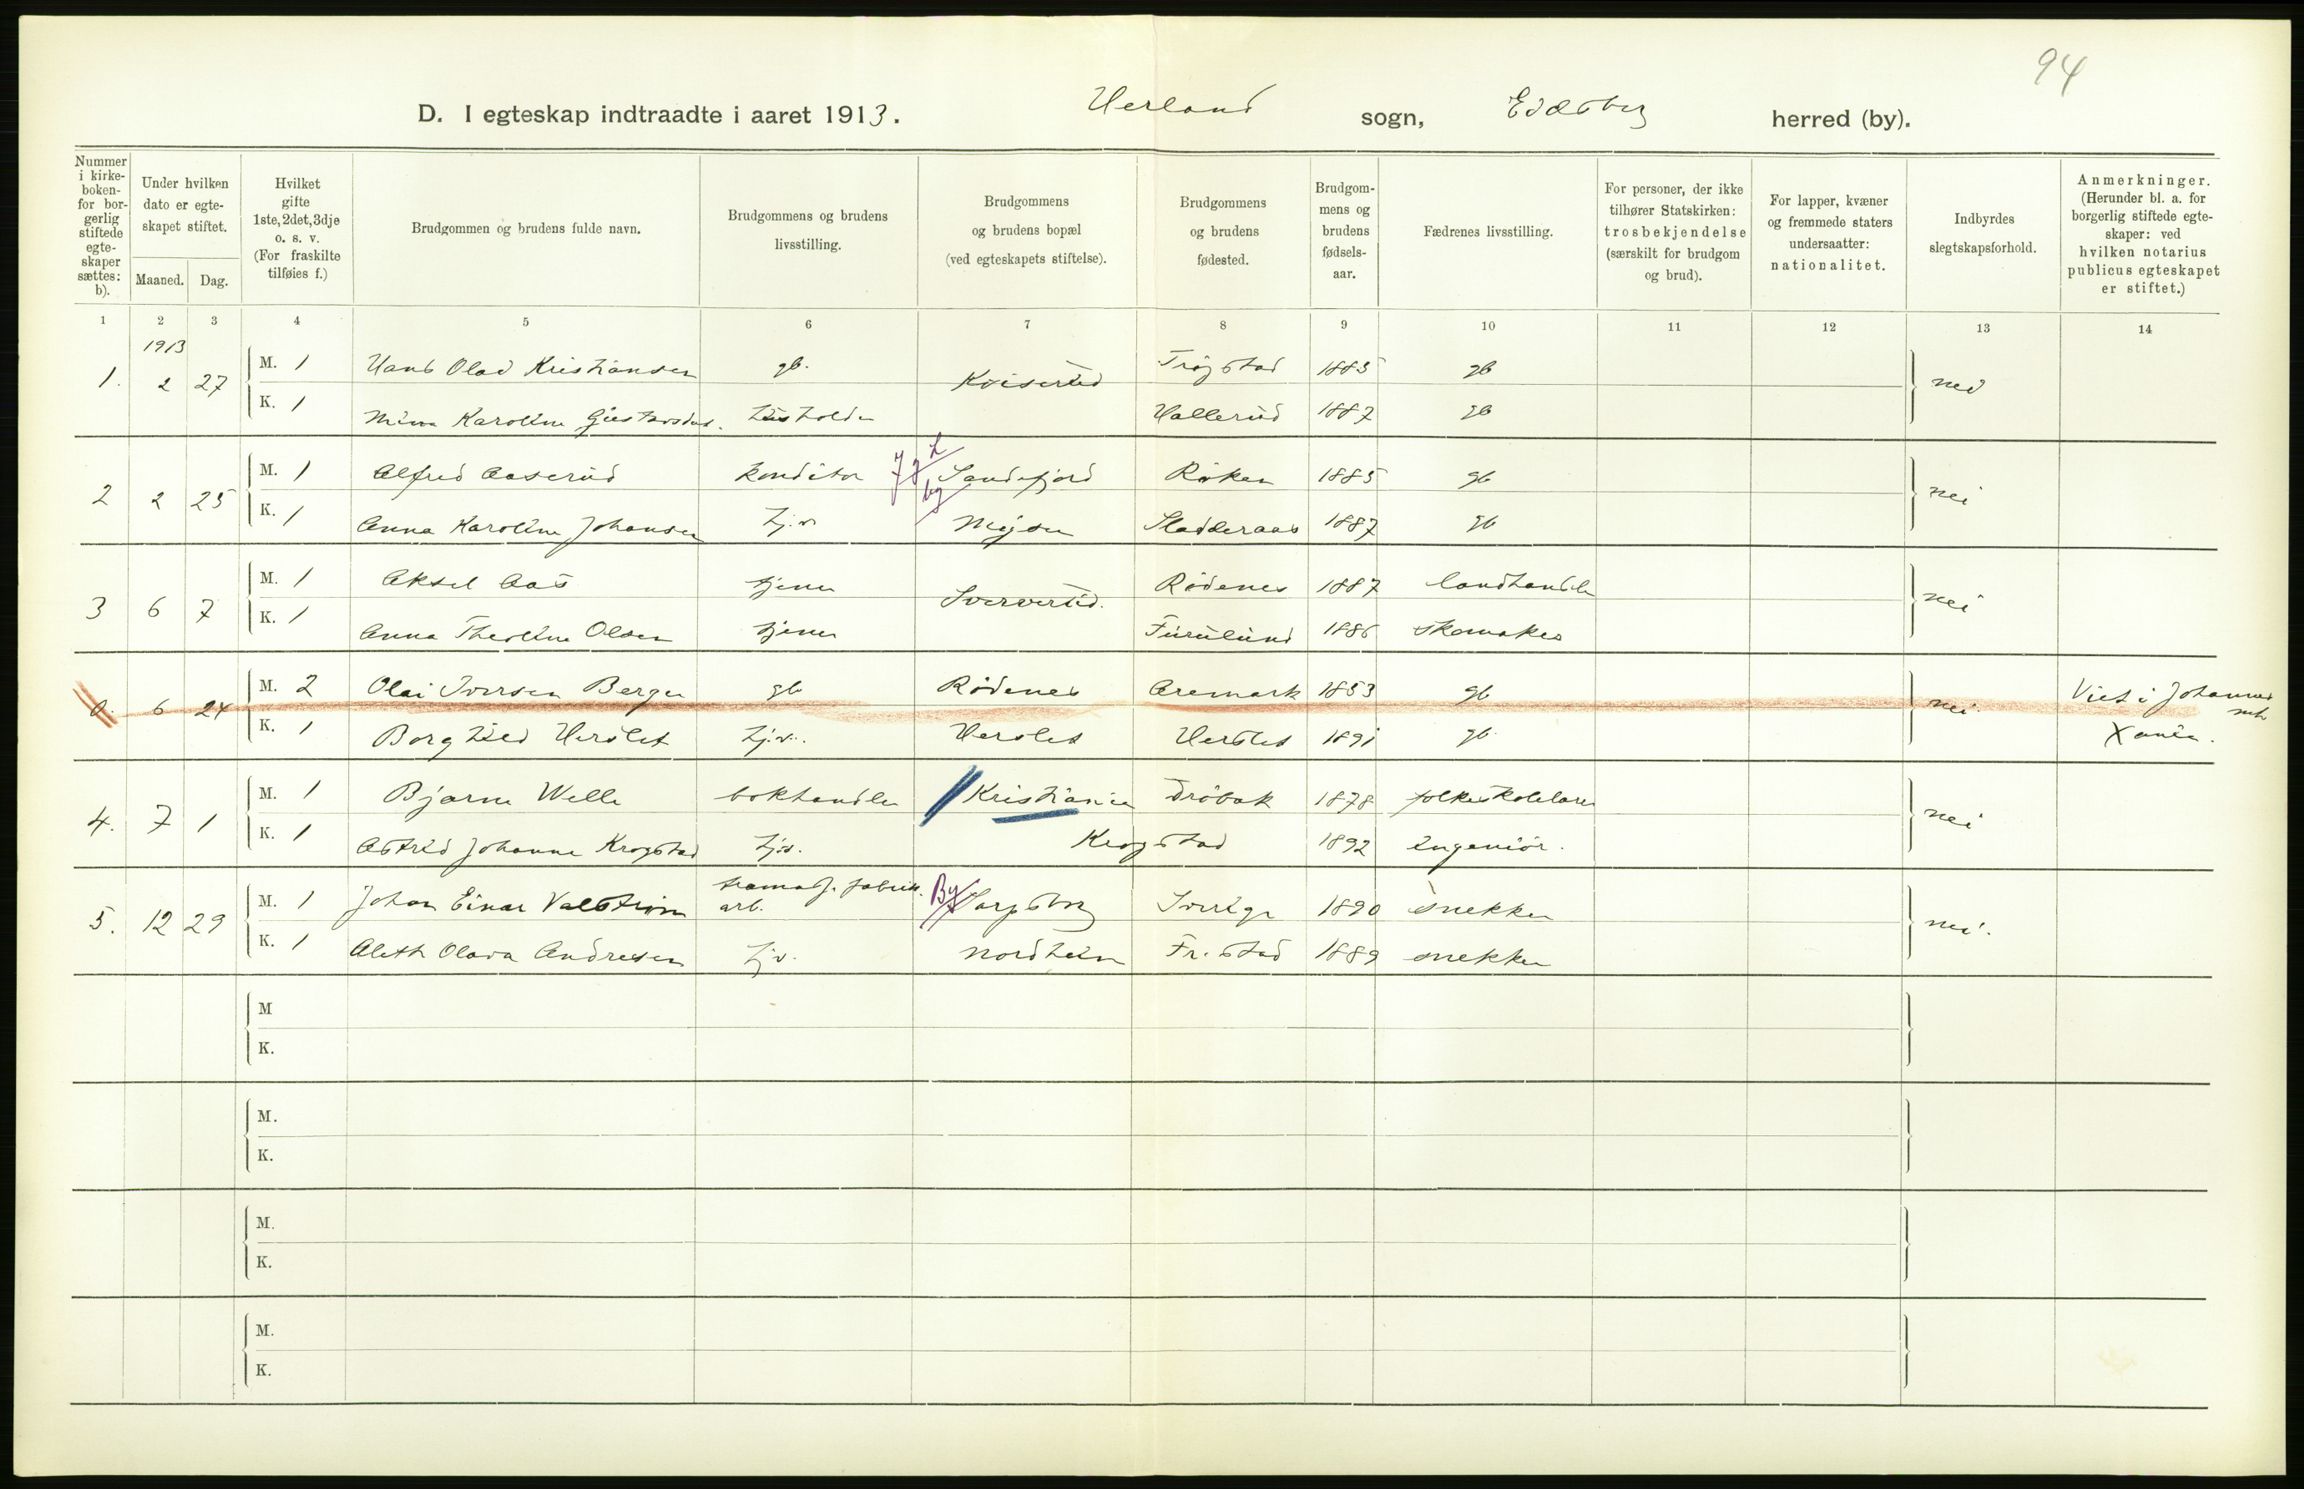 94
D. I egteskap indtraadte i aaret 1913. Herland sogn, Eidsberg herred (by).
Nummer i kirke-boken- for bor-gerlig stiftede egte-skaper sættes: b).
Under hvilken dato er egte-skapet stiftet.
Maaned. Dag.
Hvilket gifte 1ste, 2det, 3dje o. s. v. (For fraskilte tilføies f.)
Brudgommen og brudens fulde navn.
Brudgommens og brudens livsstilling.
Brudgommens og brudens bopæl (ved egteskapets stiftelse).
Brudgommens og brudens fødested.
Brudgom-mens og brudens fødsels-aar.
Fædrenes livsstilling.
For personer, der ikke tilhører Statskirken: trosbekjendelse (særskilt for brudgom og brud).
For lapper, kvæner og fremmede staters undersaatter: nationalitet.
Indbyrdes slegtskapsforhold.
Anmerkninger. (Herunder bl. a. for borgerlig stiftede egte-skaper: ved hvilken notarius publicus egteskapet er stiftet.)
1 2 3 4 5 6 7 8 9 10 11 12 13 14
1913
1. 2 27 M. 1 Hans Olav Kristiansen gb. Kviserud Trøgstad 1885 gb nei
K. 1 Mina Karoline Gustavsdat. husholder Hallerud 1887 gb
2 2 25 M. 1 Alfred Aaserud konditor Sandefjord Røken 1885 gb nei
K. 1 Anna Karoline Johansen tj.v. by Mysen Sladderaas 1887 gb
3 6 7 M. 1 Aksel Aas tjener Sververud. Rødenes 1887 landhandler nei
K. 1 Anna Theoline Olsen tjener Furulund 1886 skomaker
0. 6 24 M. 2 Olai Iversen Berger gb Rødenes Aremark 1853 gb nei. Viet i Johannes mh
K. 1 Borghild Herslet tj.v. Herslet Herslet 1891 gb Xania.
4. 7 1 M. 1 Bjarne Welle bokhandler Kristiania Drøbak 1878 folkeskolelærer nei
K. 1 Astrid Johanne Krogstad tj.v. Krogstad 1892 ingeniør.
5. 12 29 M. 1 Johan Einar Valstrøm arb. By Sarpsborg Sverige 1890 snekker nei.
K. 1 Aleth Olava Andresen tj.v. Nordheim Fr.stad 1889 snekker
M
K.
M.
K.
M.
K.
M.
K.